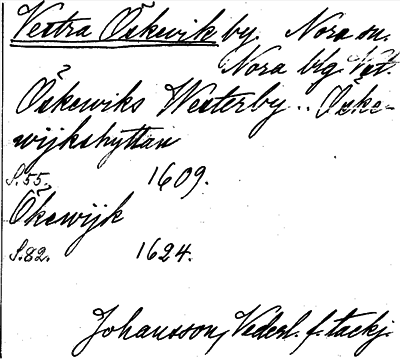 Vestra Öskevik by. Nora sn.
Nora blg. Väst.
Öskewiks Westerby .. Öske-
wijkshyttan
S.55. 1609.
Ökewijk
S.82. 1624.
Johansson, Vederl. f. tackj.